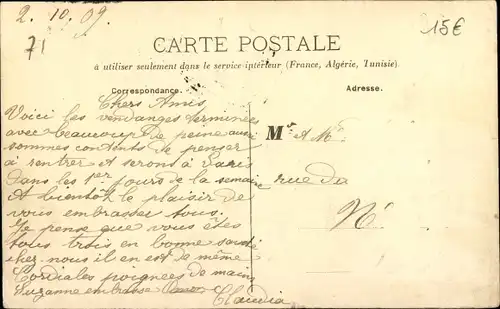 2. 10. 09.
15€
71
CARTE POSTALE
à utiliser seulement dans le service intérieur (France, Algérie, Tunisie).
Correspondance.
Adresse.
Chers Amis,
Voici les vendanges terminées
avec beaucoup de peine aussi
sommes contents de penser
à rentrer et serons à Paris
dans les 1er jours de la semaine
A bientôt le plaisir de
vous embrasser tous.
Je pense que vous êtes
tous trois en bonne santé
chez nous il en est de même
Cordiales poignées de main
Suzanne embrasse
Claudia
Mr et Me
rue du
N